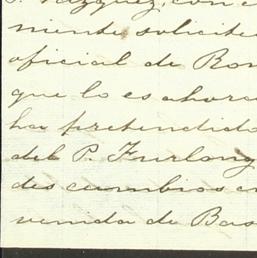 P. Vazquez, con
niente solicite
oficial de Ro
que lo es ahora
ha pretendido
del P. Furlong
des cumbios en
venida de Bas